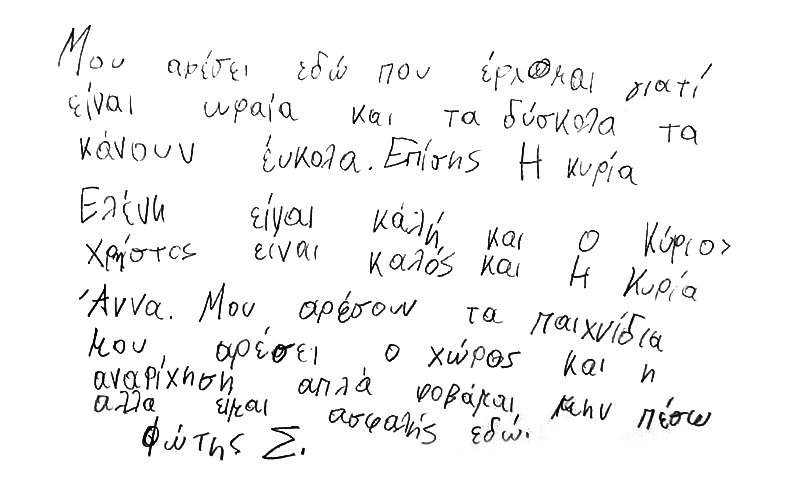 Μου αρέσει εδώ που έρχομαι γιατί
είναι ωραία και τα δύσκολα τα
κάνουν έυκολα. Επίσης Η κυρία
Ελένη είναι κάλή και Ο Κύριος
Χρήστος είναι καλός και Η Κυρία
Άννα. Μου αρέσουν τα παιχνίδια
μου αρέσει ο χώρος και η
αναρίχηση απλά φοβάμαι μην πέσω
αλλα είμαι ασφαλής εδώ.
Φώτης Σ.